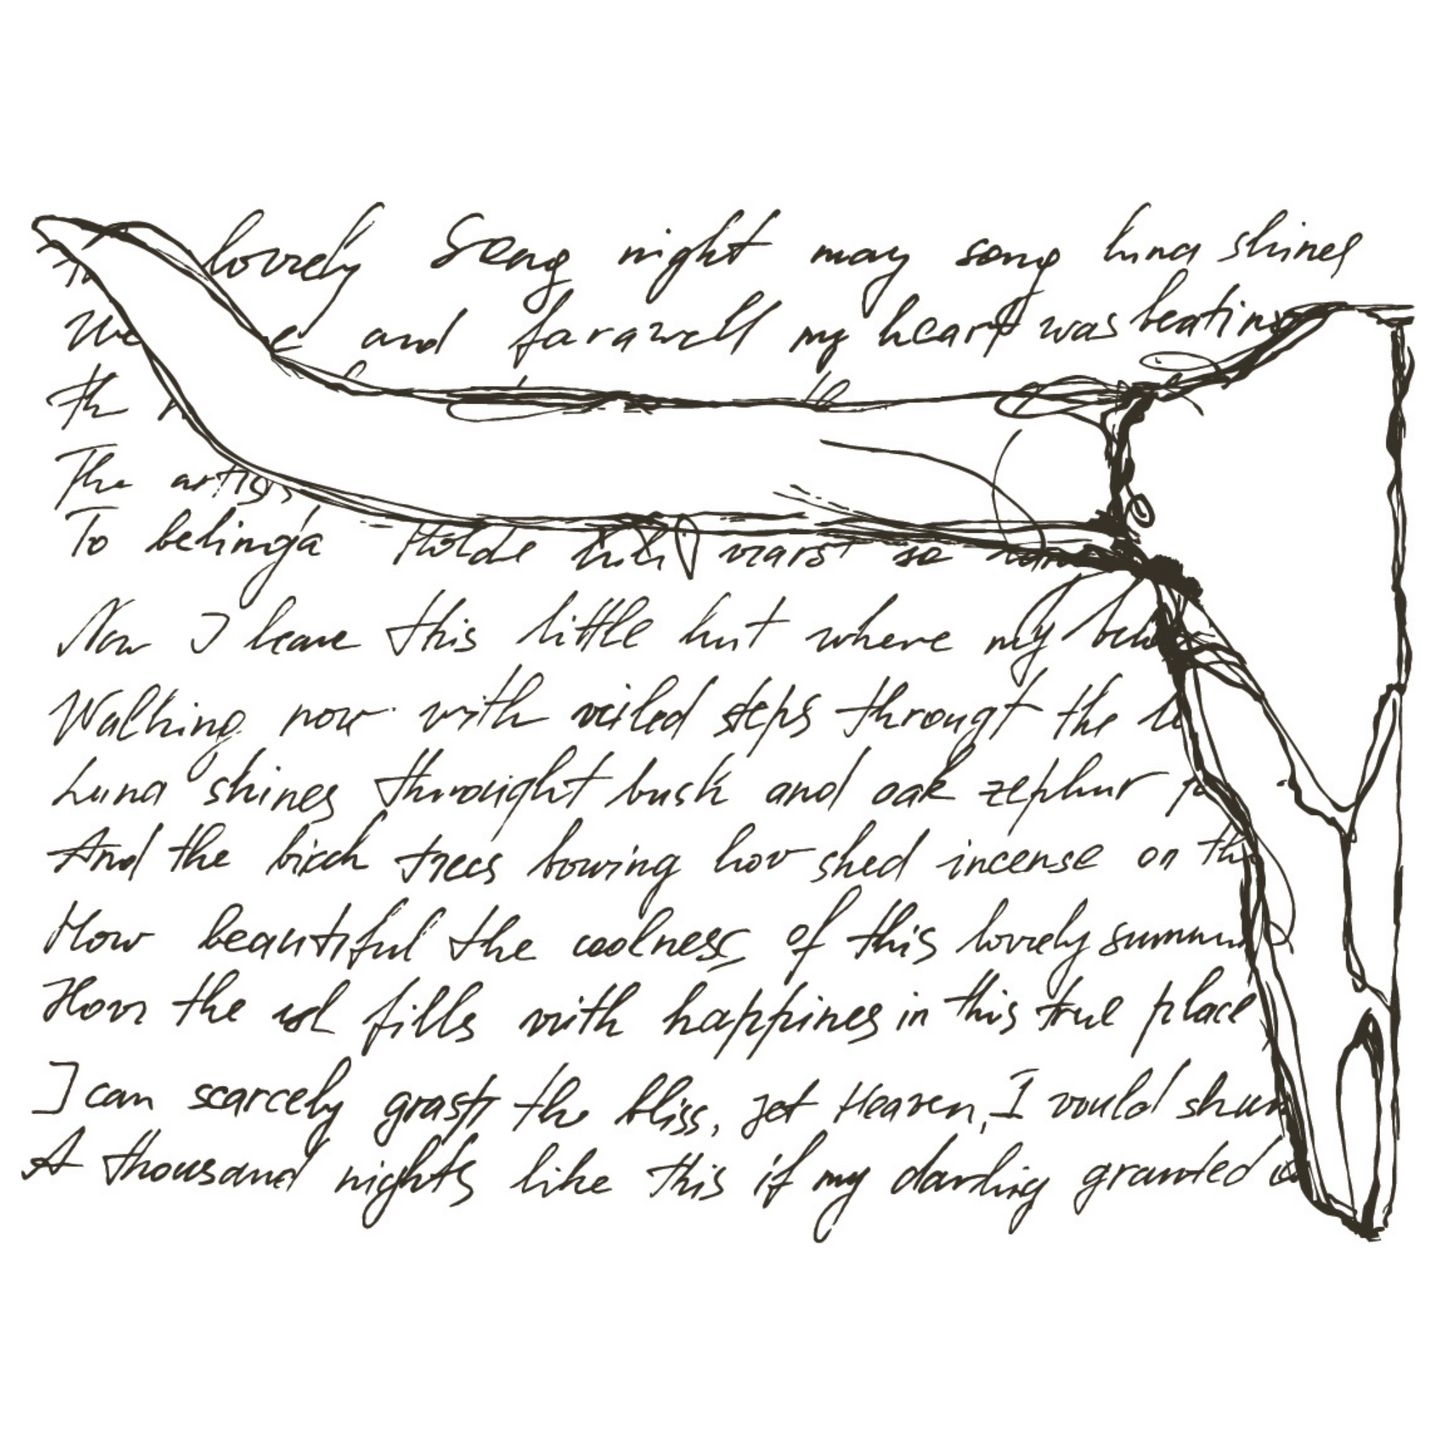 lovely Seng night may song luna shines
and farawell my heart was beating
The
The artists
To belinga Holde
Now I leave this little hut where my
Walking now with veiled steps througt the
Luna shines throught busk and oak zephur
And the birch trees bowing hov shed incense on
How beautiful the coolness of this lovely
How the fills with happines in this true place
I can scarcely grasp the bliss, jet Heaven, I would shun
A thousand nights like this if my darling granted